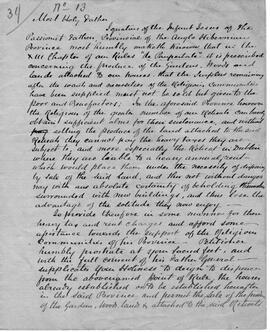 34
No 13
Most Holy Father
Ignatius of the Infant Jesus of the
Passionist Fathers, Provincial of the Anglo Hibernian
Province most humbly maketh known that in the
Chapter of our Rules "de Paupertate" it is prescribed
concerning the produce of the gardens, woods or
lands attached to our houses, that the surplus remaining
after the wants and necessities of the Religious Communities
have been supplied must not be sold but given to the
poor and Benefactors. In the aforesaid Province however
the Religious of the greater number of our Retreats can
obtain sufficient alms for their subsistence, and without
selling the produce of the land attached to the said
Retreats they cannot pay the heavy taxes they are
subject to, and more especially the Retreat of Dublin
where they are liable to a heavy annual rent
which would place them under the necessity of disposing
by sale of the said land, and this not without danger
nay with an absolute certainty of beholding themselves
surrounded with new buildings, and thus lose the
advantage of the solitude they now enjoy.
To provide therefore in some manner for these
heavy tax and rent charges and afford some
assistance towards the support of the Religious
Communities of his Province - Petitioner
humbly prostrate at your sacred feet, and
with the full consent of his Father General
supplicates Your Holiness to deign to dispense
from the above point of Rule, the houses
already established or to be established hereafter
in the said Province and permit the sale of the produce
of the Garden, Wood, land &c attached to the said Retreats